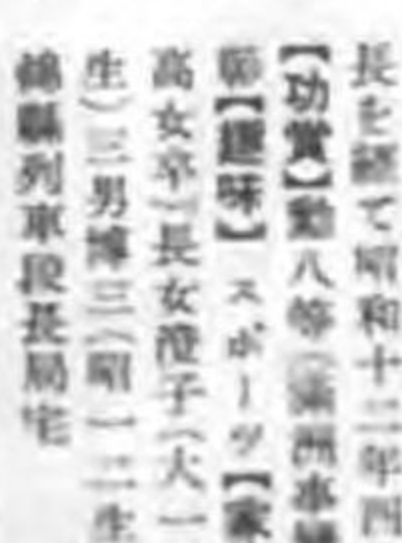 長を経て昭和十二年四
【功賞】勲八等（満洲事変
彰【趣味】スポーツ【家
高女卒）長女澄子（大一
生）三男博三（昭一二生
錦縣列車段長局宅